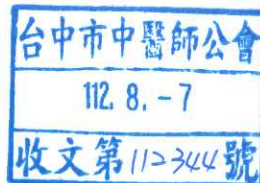 台中市中醫師公會
112. 8. -7
收文第112344號